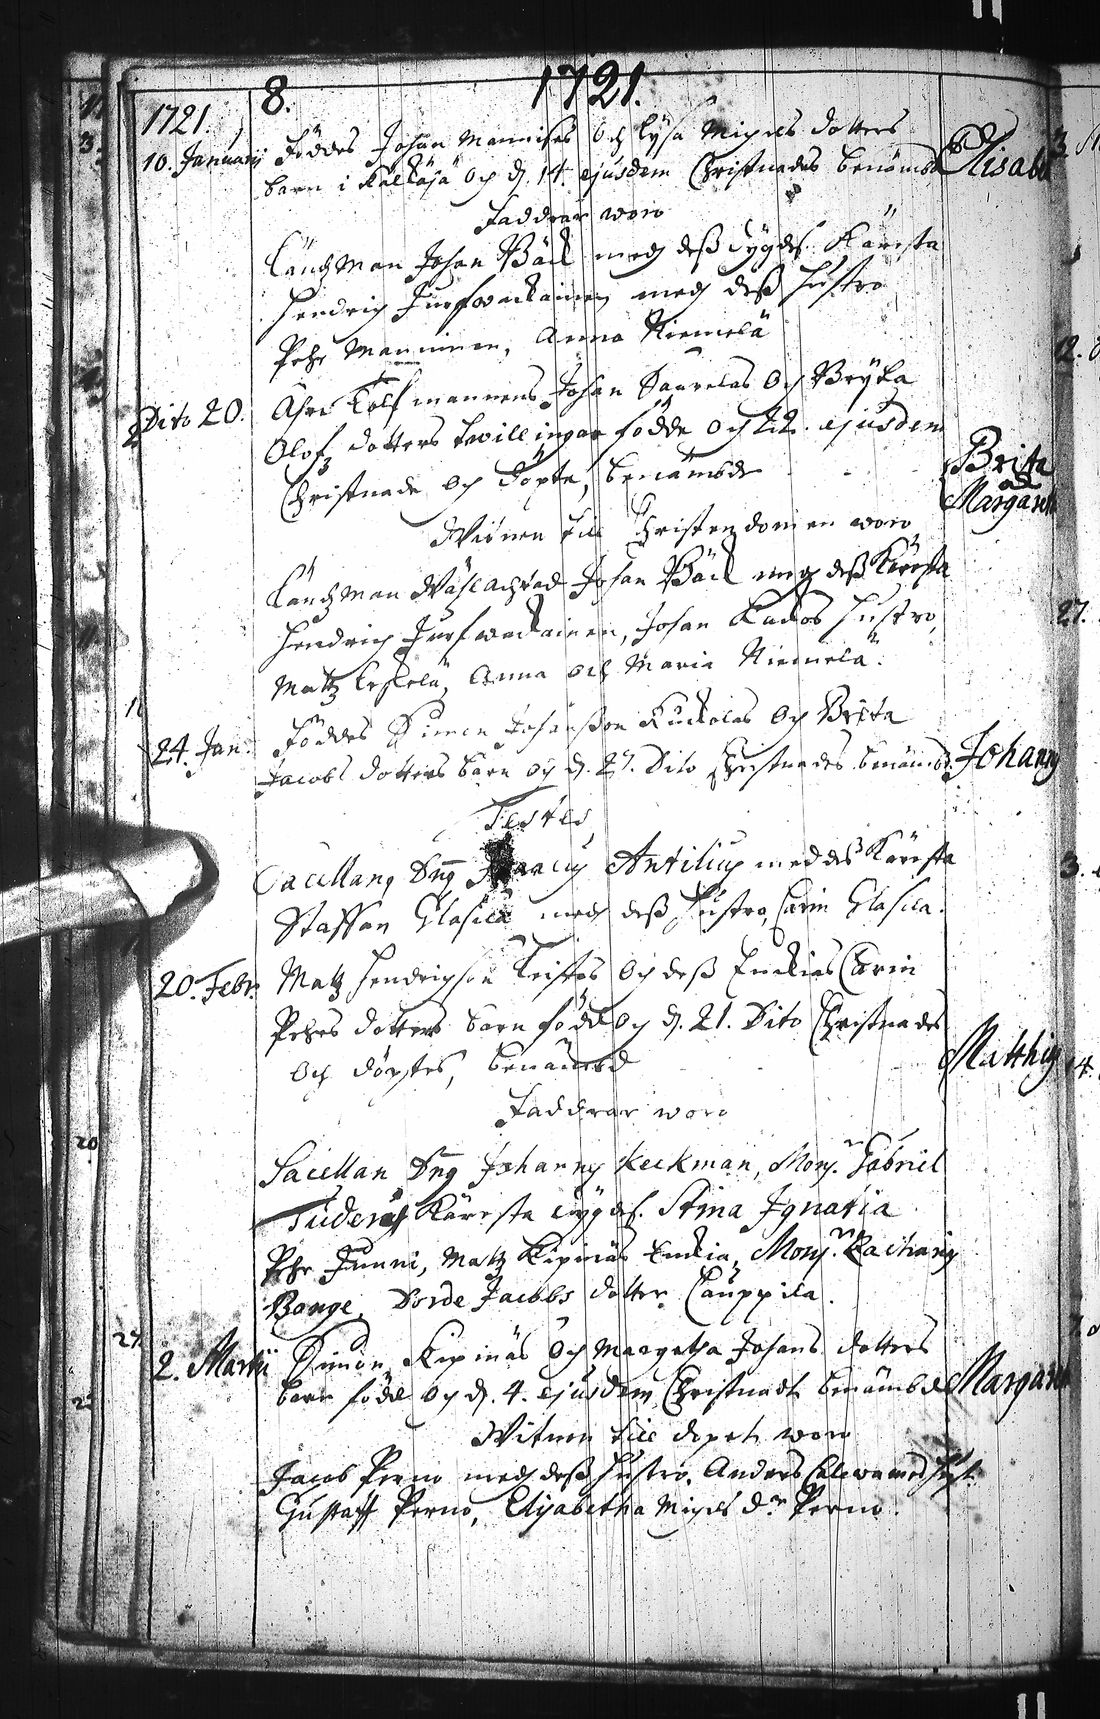 8. 1721.
1721.
10. Januarij Föddes Johan Mannises och Lysa Michels dotters
barn i Kalkåja och d. 14. ejusdem Christnades benämbd Elisabe
Faddrar woro
Länds Man Johan Bäck med dess Sygdes. Käresta
Hendrich Jurfwackainen med dess hustro
Pehr Manninen, Anna Niemelä
Dito 20. Åhre Tolfmannens Johan Saurelas och Bryta
Olofz dotters twillingar födde och 22. ejusdem
Christnade och döpte, benämbde Brita och Margare
Witnen till Christendomen woro
Länds Man Wählachtad Johan Bäck med dess Käresta
Hendrich Jurfwackainen, Johan Kackos hustro,
Matz Eskelä, Anna och Maria Niemelä.
24. Jan. Föddes Simon Johansson Kuckolas och Brita
Jacobs dotters barn och d. 27. Dito Christnades benämbd. Johannes
Testes,
Sacellanus Dns Antilius med des Käresta
Staffan Glasila med dess hustro, Carin Glasila.
20. Febr. Matz Hendrichson Leistes och dess Enckias Carin
Pehrs dotters barn född och d. 21. Dito Christnades
och döptes, benämbd Matthias
Faddrar woro
Sacellan Dns Johannes Keckman, Monsr. Gabriel
Tuderus Käresta Sygdes. Stina Ignatia
Pehr Junni, Matz Kipinäs Enckia, Monsr. Zacharias
Bonge, Dorde Jacobs dotter Cauppila.
2. Martii Simon Kipinäs och Margetha Johans dotters
barn född och d. 4. ejusdem Christnadt benämbd Margare
Witnen till dopet woro
Jacob Perno med dess hustro, Anders Calewa med hust.
Gustaff Perno, Elisabetha Michels dr. Perno.